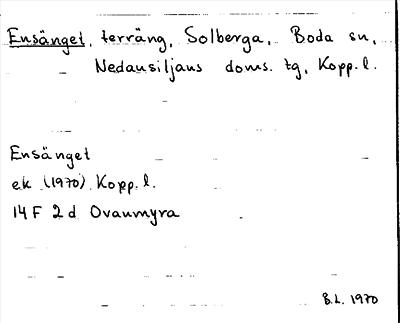 Ensänget, terräng, Solberga, Boda sn,
Nedansiljans doms. tg, Kopp. l.
Ensänget
ek (1970) Kopp. l.
14 F 2 d Ovanmyra
B.L. 1970